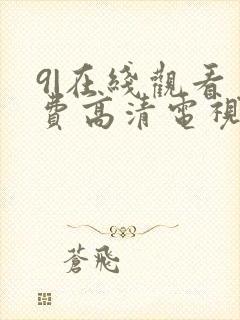 91在綫觀看
費高清電視
蒼飛